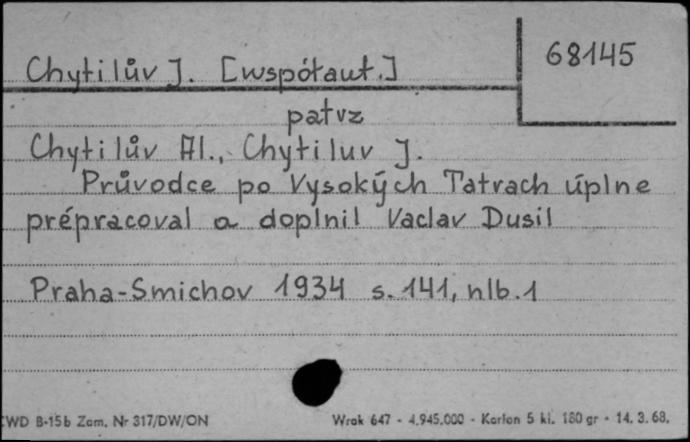 Chytilův J. [współaut.]
68145
patrz
Chytilův Al., Chytiluv J.
Průvodce po Vysokých Tatrach úplne
prépracoval a doplnil Vaclav Dusil
Praha-Smichov 1934 s. 141, nlb. 1
CWD B-15b Zam. Nr 317/DW/ON
Wrak 647 - 4.945.000 - Karton 5 kl. 180 gr - 14. 3. 68.